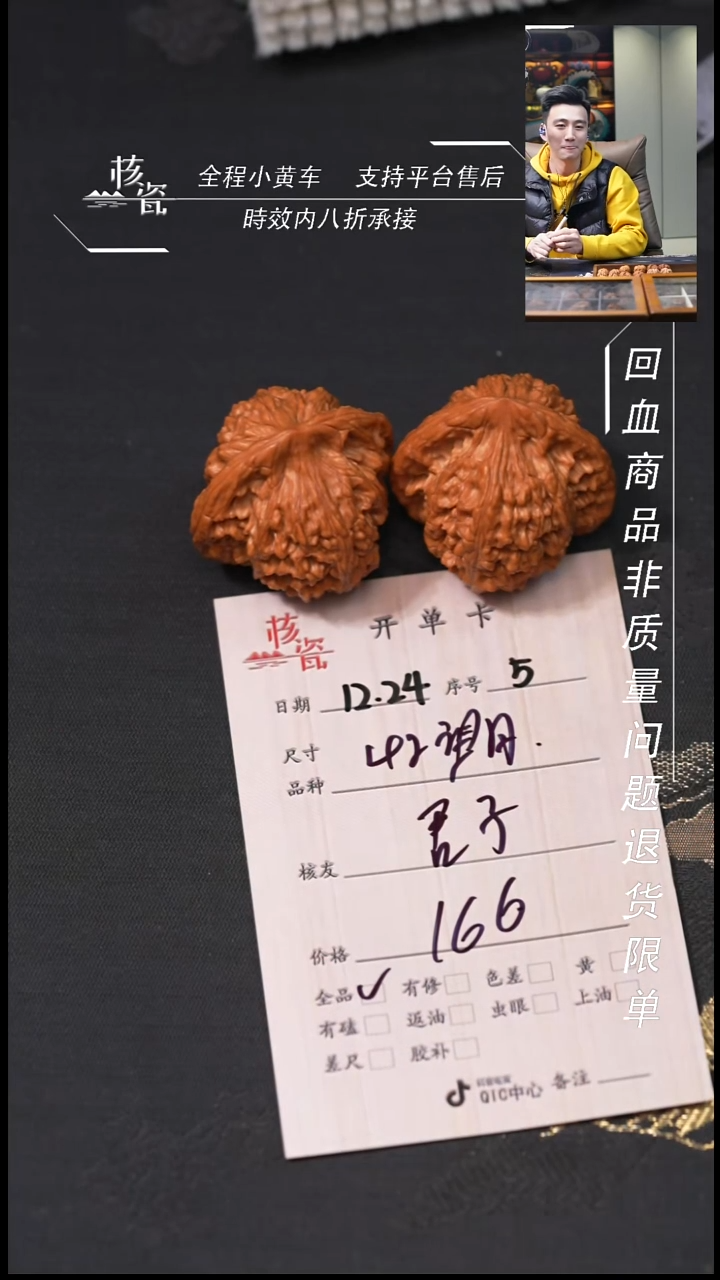 核瓷
全程小黄车 支持平台售后
時效内八折承接
回血商品非质量问题退货限单
核瓷
开单卡
日期 12.24 序号 5
尺寸
品种 42望月.
核友 君子
价格 166
全品 ✓ 有修 色差 黄
有磕 返油 虫眼 上油
差尺 胶补
QIC中心 备注